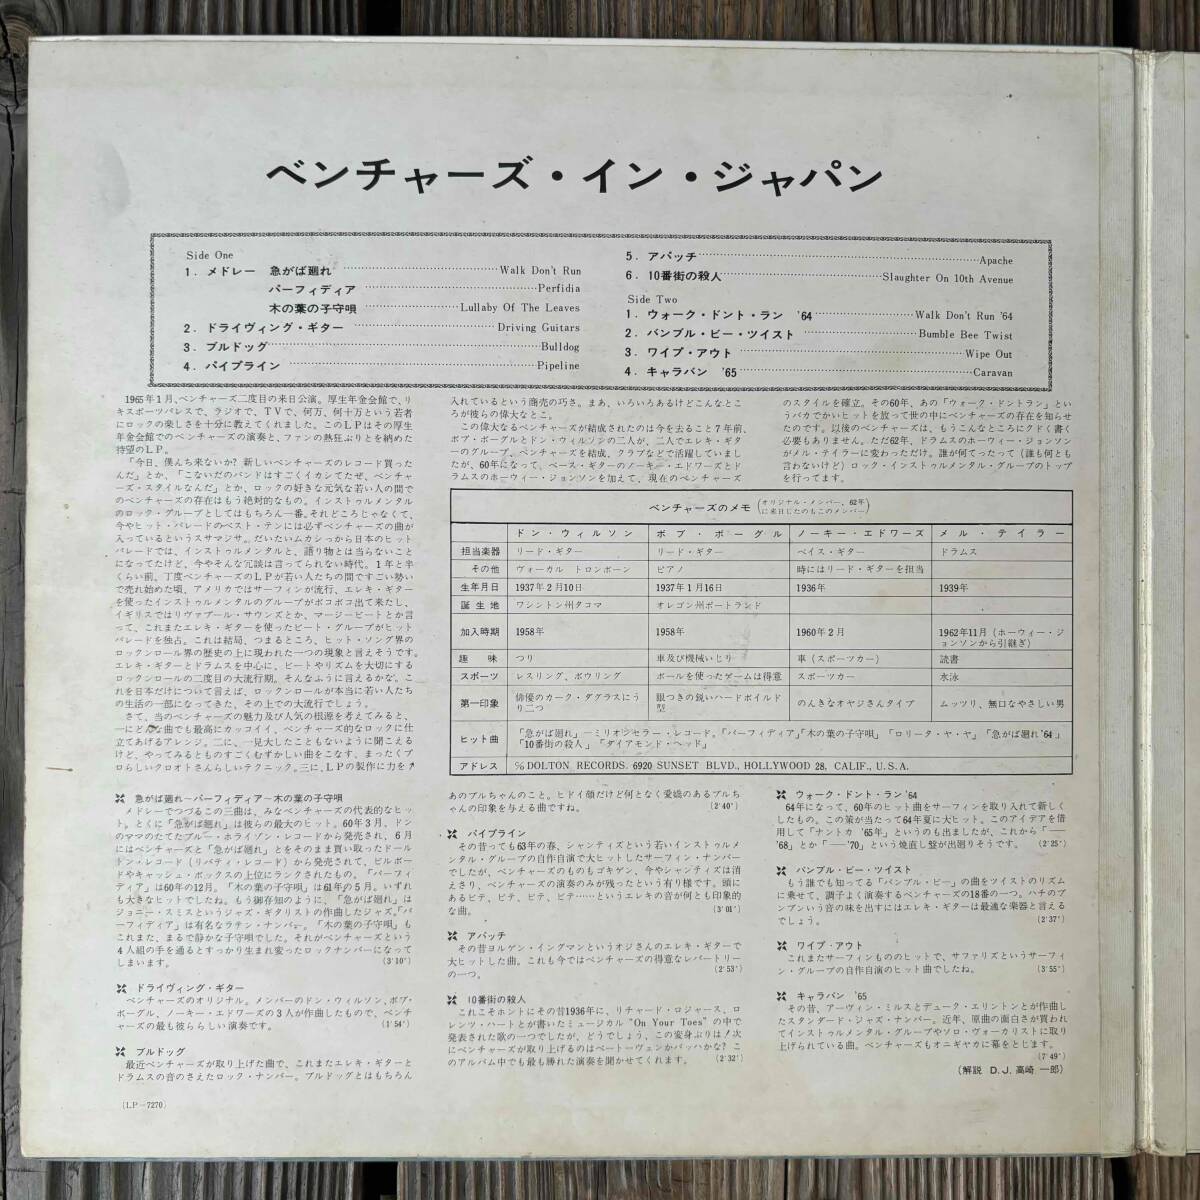 ベンチャーズ・イン・ジャパン
Side One
1. メドレー 急がば廻れ Walk Don't Run
パーフィディア Perfidia
木の葉の子守唄 Lullaby Of The Leaves
2. ドライヴィング・ギター Driving Guitars
3. ブルドッグ Bulldog
4. パイプライン Pipeline
5. アパッチ Apache
6. 10番街の殺人 Slaughter On 10th Avenue
Side Two
1. ウォーク・ドント・ラン '64 Walk Don't Run '64
2. バンブル・ビー・ツイスト Bumble Bee Twist
3. ワイプ・アウト Wipe Out
4. キャラバン '65 Caravan
1965年1月、ベンチャーズ二度目の来日公演。厚生年金会館で、リ
キスポーツパレスで、ラジオで、TVで、何万、何十万という若者
にロックの楽しさを十分に教えてくれました。このLPはその厚生
年金会館でのベンチャーズの演奏と、ファンの熱狂ぶりとを納めた
待望のLP。
「今日、僕んち来ないか?新しいベンチャーズのレコード買った
んだ」とか、「こないだのバンドはすごくイカシてたぜ、ベンチャ
ーズ・スタイルなんだ」とか、ロックの好きな元気な若い人の間で
のベンチャーズの存在はもう絶対的なもの。インストゥルメンタル
のロック・グループとしてはもちろん一番。それどころじゃなくて、
今やヒット・パレードのベスト・テンには必ずベンチャーズの曲が
入っているというスサマジサ。だいたいムカシっから日本のヒット
パレードでは、インストゥルメンタルと、語り物とは当らないこと
になってたけど、今やそんな冗談は言ってられない時代。1年と半
くらい前、丁度ベンチャーズのLPが若い人たちの間ですごい勢い
で売れ始めた頃、アメリカではサーフィンが流行、エレキ・ギター
を使ったインストゥルメンタルのグループがボコボコ出て来たし、
イギリスではリヴァプール・サウンズとか、マージービートとか言
って、これまたエレキ・ギターを使ったビート・グループがヒット
パレードを独占。これは結局、つまるところ、ヒット・ソング界の
ロックンロール界の歴史の上に現われた一つの現象と言えそうです。
エレキ・ギターとドラムスを中心に、ビートやリズムを大切にする
ロックンロールの二度目の大流行期。そんなふうに言えるかな。こ
れを日本だけについて言えば、ロックンロールが本当に若い人たち
の生活の一部になってきた、その上での大流行でしょう。
さて、当のベンチャーズの魅力及び人気の根源を考えてみると、
一にどんな曲でも最高にカッコイイ、ベンチャーズ的なロックに仕
立てあげるアレンジ。二に、一見大したこともないように聞こえる
けど、やってみるとものすごくむずかしい曲をこなす、まったくプ
ロらしいクロオトさんらしいテクニック。三に、LPの製作に力を
入れているという商売の巧さ。まあ、いろいろあるけどこんなとこ
ろが彼らの偉大なとこ。
この偉大なるベンチャーズが結成されたのは今を去ること7年前、
ボブ・ボーグルとドン・ウィルソンの二人が、二人でエレキ・ギタ
ーのグループ、ベンチャーズを結成、クラブなどで活躍していまし
たが、60年になって、ベース・ギターのノーキー・エドワーズとド
ラムスのホーウィー・ジョンソンを加えて、現在のベンチャーズ
のスタイルを確立。その60年、あの「ウォーク・ドントラン」とい
うバカでかいヒットを放って世の中にベンチャーズの存在を知らせ
たのです。以後のベンチャーズは、もうこんなところにクドく書く
必要もありません。ただ62年、ドラムスのホーウィー・ジョンソン
がメル・テイラーに変わっただけ。誰が何てったって(誰も何とも
言わないけど)ロック・インストゥルメンタル・グループのトップ
を行ってます。
ベンチャーズのメモ (オリジナル・メンバー、62年に来日したのもこのメンバー)
ドン・ウィルソン ボブ・ボーグル ノーキー・エドワーズ メル・テイラー
担当楽器 リード・ギター リード・ギター ベイス・ギター ドラムス
その他 ヴォーカル トロンボーン ピアノ 時にはリード・ギターを担当
生年月日 1937年2月10日 1937年1月16日 1936年 1939年
誕生地 ワシントン州タコマ オレゴン州ポートランド
加入時期 1958年 1958年 1960年2月 1962年11月(ホーウィー・ジョンソンから引継ぎ)
趣味 つり 車及び機械いじり 車(スポーツカー) 読書
スポーツ レスリング、ボウリング ボールを使ったゲームは得意 スポーツカー 水泳
第一印象 俳優のカーク・ダグラスにうり二つ 眼つきの鋭いハードボイルド型 のんきなオヤジさんタイプ ムッツリ、無口なやさしい男
ヒット曲 「急がば廻れ」—ミリオンセラー・レコード。「パーフィディア」「木の葉の子守唄」「ロリータ・ヤ・ヤ」「急がば廻れ'64」
「10番街の殺人」「ダイアモンド・ヘッド」
アドレス ℅ DOLTON RECORDS. 6920 SUNSET BLVD., HOLLYWOOD 28, CALIF., U.S.A.
急がば廻れーパーフィディアー木の葉の子守唄
メドレーでつづるこの三曲は、みなベンチャーズの代表的なヒッ
ト。とくに「急がば廻れ」は彼らの最大のヒット。60年3月、ドン
のママのたてたブルー・ホライゾン・レコードから発売され、6月
にはベンチャーズと「急がば廻れ」とをそのまま買い取ったドール
トン・レコード(リバティ・レコード)から発売されて、ビルボー
ドやキャッシュ・ボックスの上位にランクされたもの。「パーフィ
ディア」は60年の12月。「木の葉の子守唄」は61年の5月。いずれ
も大きなヒットでしたね。もう御存知のように、「急がば廻れ」は
ジョニー・スミスというジャズ・ギタリストの作曲したジャズ。「パ
ーフィディア」は有名なラテン・ナンバー。「木の葉の子守唄」も
これまた、まるで静かな子守唄でした。それがベンチャーズという
4人組の手を通るとすっかり生まれ変ったロックナンバーになって
しまいます。 (3'10")
ドライヴィング・ギター
ベンチャーズのオリジナル。メンバーのドン・ウィルソン、ボブ・
ボーグル、ノーキー・エドワーズの3人が作曲したもので、ベンチ
ャーズの最もらしい演奏です。 (1'54")
ブルドッグ
最近ベンチャーズが取り上げた曲で、これまたエレキ・ギターと
ドラムスの音のさえたロック・ナンバー。ブルドッグとはもちろん
あのブルちゃんのこと。ヒドイ顔だけど何となく愛嬌のあるブルち
ゃんの印象を与える曲ですね。 (2'40")
パイプライン
その昔っても63年の春、シャンティズという若いインストゥルメ
ンタル・グループの自作自演で大ヒットしたサーフィン・ナンバー
でしたが、ベンチャーズのものもゴキゲン、今やシャンティズは消
えさり、ベンチャーズの演奏のみが残ったという有り様です。頭に
あるピテ、ピテ、ピテ、ピテ……というエレキの音が何とも印象的
な曲。 (3'01")
アパッチ
その昔ヨルゲン・イングマンというオジさんのエレキ・ギターで
大ヒットした曲。これも今ではベンチャーズの得意なレパートリー
の一つ。 (2'53")
10番街の殺人
これこそホントにその昔1936年に、リチャード・ロジャース、ロ
レンツ・ハートとが書いたミュージカル "On Your Toes" の中で
発表された歌の一つでしたが、どうでしょう、この変身ぶりは!次
にベンチャーズが取り上げるのはベートーヴェンかバッハかな?こ
のアルバム中でも最も勝れた演奏を聞かせてくれます。 (2'32")
ウォーク・ドント・ラン '64
64年になって、60年のヒット曲をサーフィンを取り入れて新しく
したもの。この策が当たって64年夏に大ヒット。このアイデアを借
用して「ナントカ '65年」というのも出ましたが、これから「——
'68」とか「——'70」という焼直し盤が出廻りそうです。 (2'25")
バンブル・ビー・ツイスト
もう誰でも知ってる「バンブル・ビー」の曲をツイストのリズム
に乗せて、調子よく演奏するベンチャーズの18番の一つ。ハチのブ
ンブンいう音の味を出すにはエレキ・ギターは最適な楽器と言える
でしょう。 (2'37")
ワイプ・アウト
これまたサーフィンもののヒットで、サファリズというサーフィ
ン・グループの自作自演のヒット曲でしたね。 (3'55")
キャラバン '65
その昔、アーヴィン・ミルスとデューク・エリントンとが作曲し
たスタンダード・ジャズ・ナンバー。近年、原曲の面白さが買われ
てインストゥルメンタル・グループやソロ・ヴォーカリストに取り
上げられている曲。ベンチャーズもオニギヤカに幕をとじます。
(7'49")
(解説 D.J.高崎一郎)
(LP—7270)